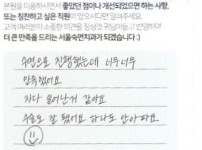 본원을 이용하시면서 좋았던 점이나 개선되었으면 하는 사항,
또는 칭찬하고 싶은 직원이 있으시다면 알려주세요.
고객 여러분의 소중한 의견을 정성껏 귀담아듣고 반영하여
더 큰 만족을 드리는 서울숲면치과가 되겠습니다 :)
수면으로 진행했는데 너무너무
만족했어요
자다 일어난거 같아요
수술도 잘 됐어요 감사합니다